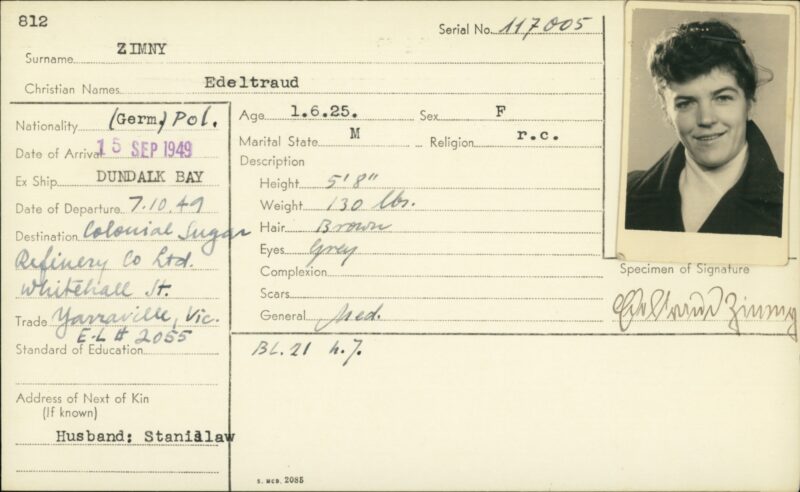 812
Serial No. 117005
Surname ZIMNY
Christian Names Edeltraud
Nationality (Germ.) Pol.
Date of Arrival 15 SEP 1949
Ex Ship DUNDALK BAY
Date of Departure 7.10.49
Destination Colonial Sugar
Refinery Co Ltd.
Whitehall St.
Trade Yarraville, Vic.
E-L # 2055
Standard of Education
Address of Next of Kin
(If known)
Husband: Stanislaw
Age 1.6.25. Sex F
Marital State M Religion r.c.
Description
Height 5'8"
Weight 130 lbs.
Hair Brown
Eyes Grey
Complexion
Scars
General Med.
BL. 21 h.7.
Specimen of Signature
Edeltraud Zimny
S. MCD. 2085